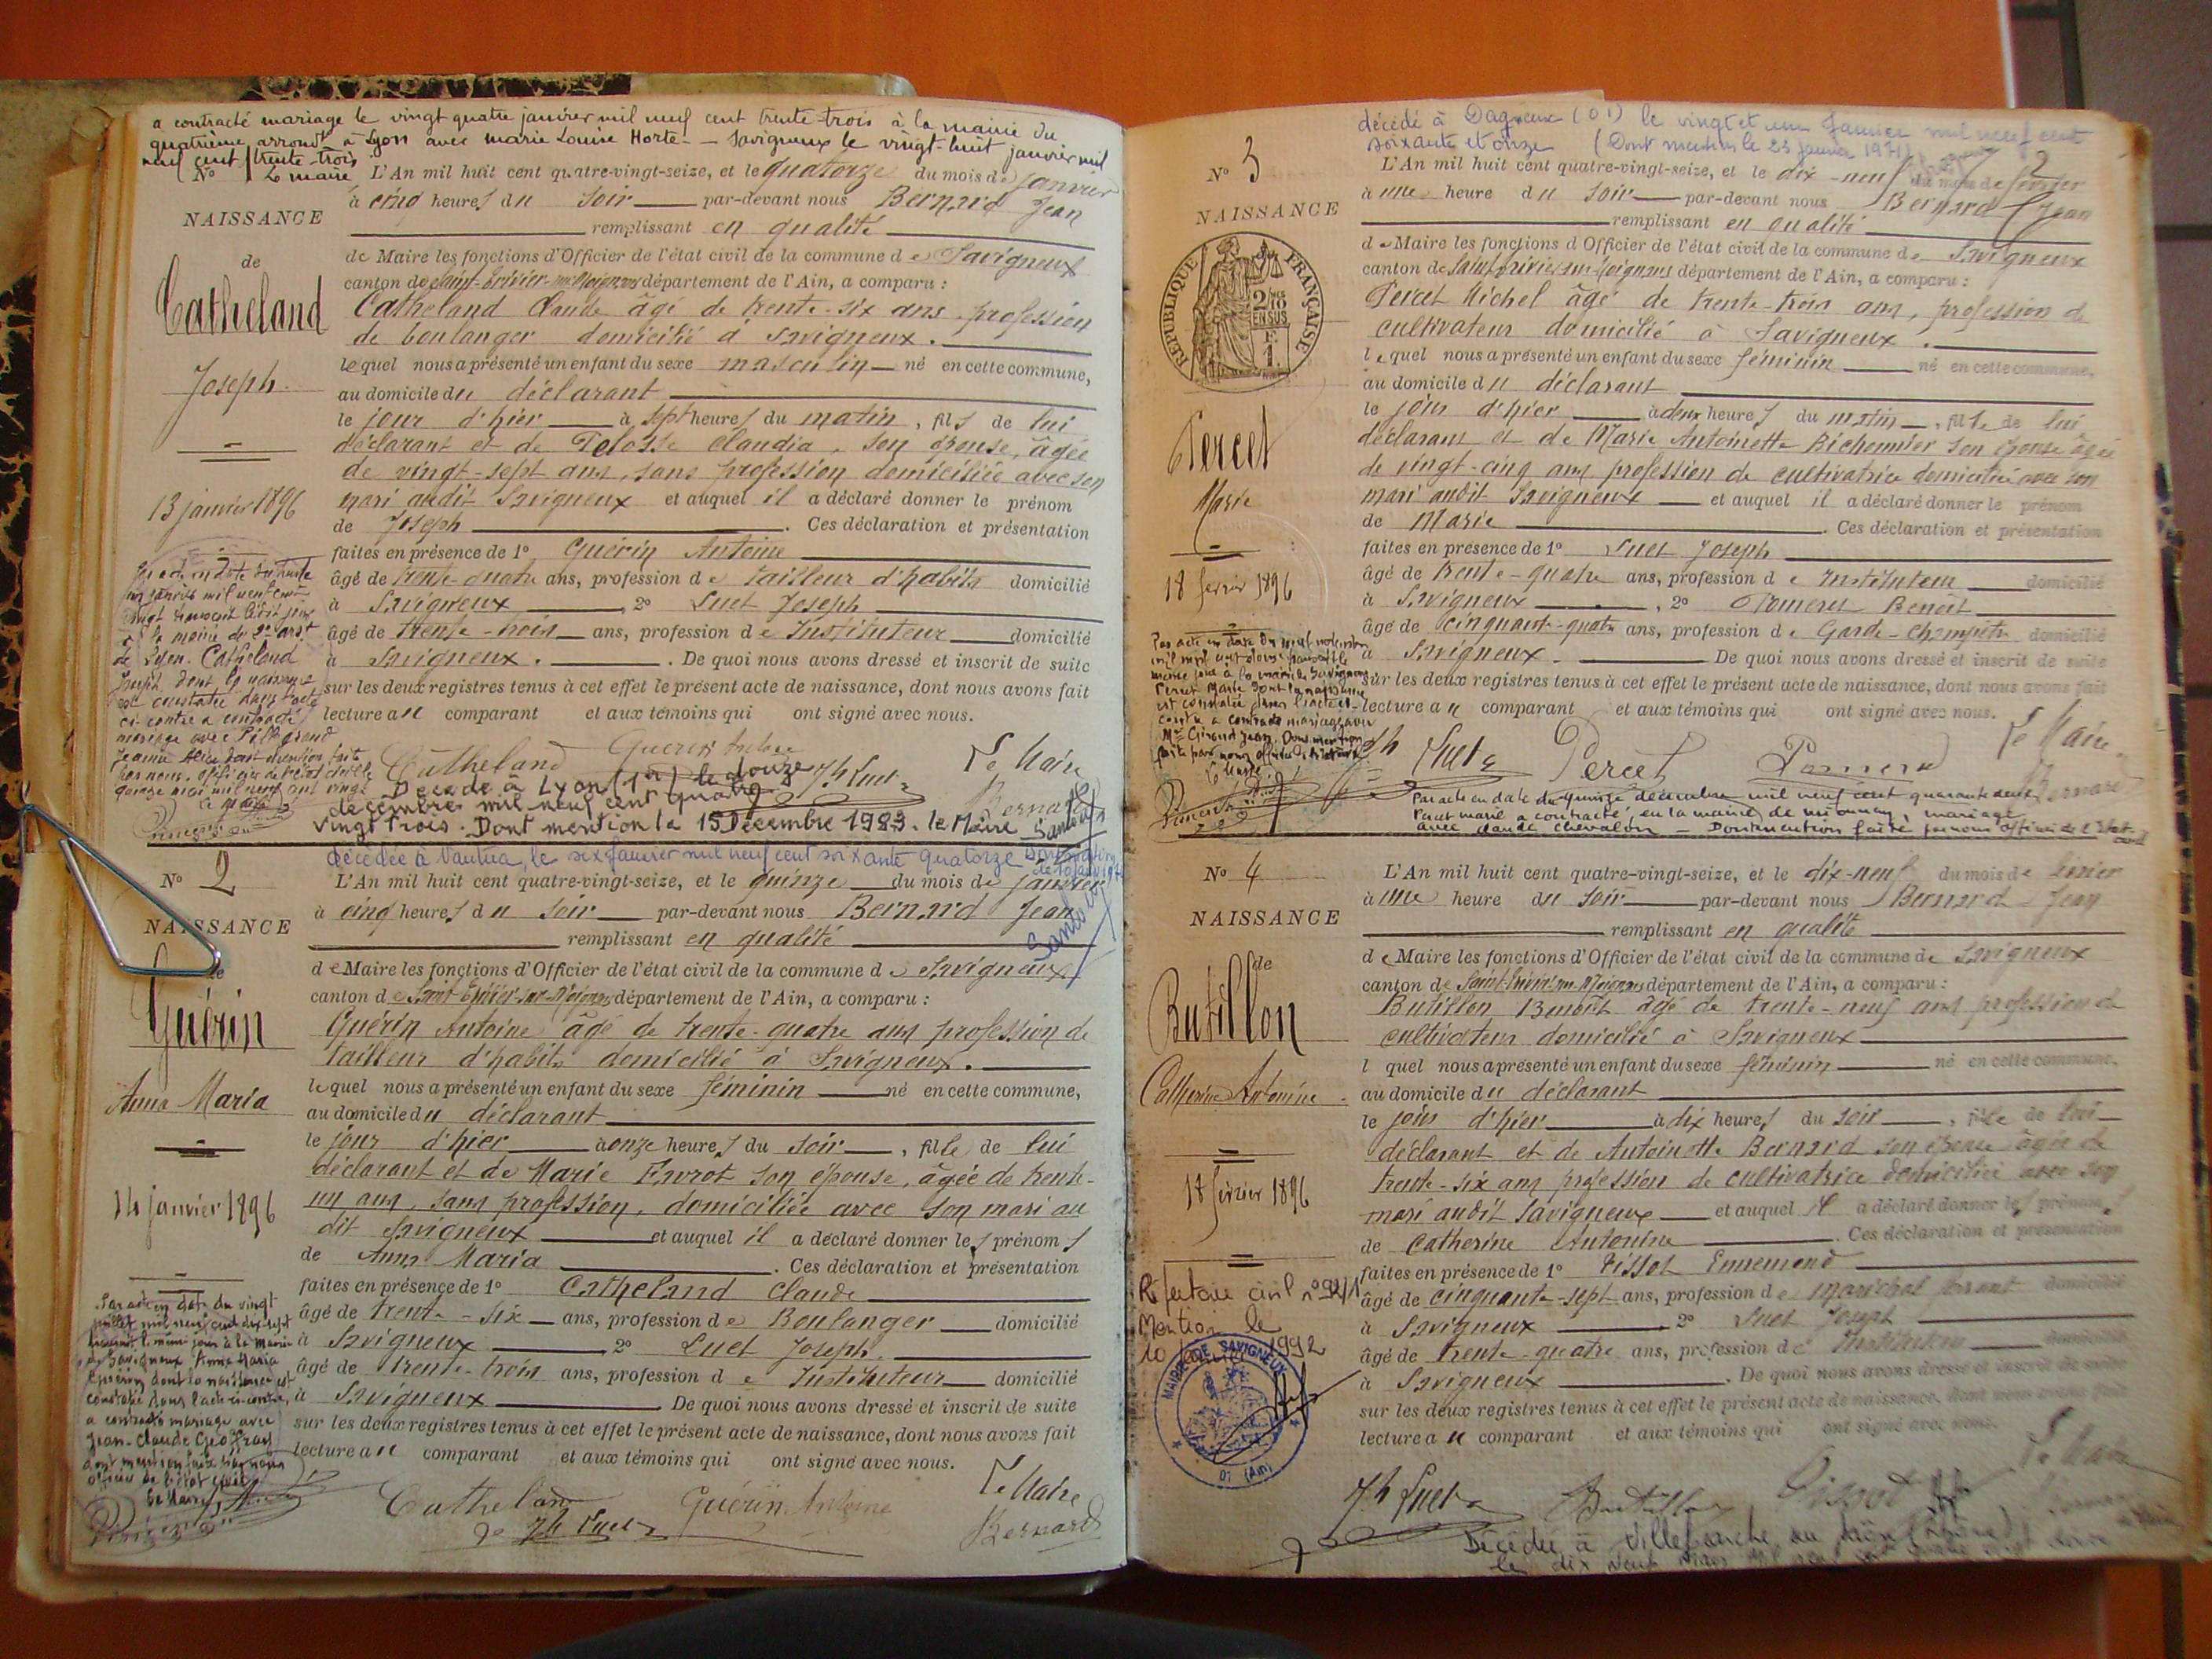 a contracté mariage le vingt quatre janvier mil neuf cent trente trois à la mairie du
quatrième arrondt à Lyon avec Marie Louise Horte - Savigneux le vingt-huit janvier mil
neuf cent trente-trois
Le maire
No
NAISSANCE
de
Catheland
Joseph
13 janvier 1896
L'An mil huit cent quatre-vingt-seize, et le quatorze du mois de janvier
à cinq heures du soir par-devant nous Bernard Jean
remplissant en qualité
de Maire les fonctions d'Officier de l'état civil de la commune de Savigneux
canton de Saint-Trivier-sur-Moignans département de l'Ain, a comparu :
Catheland Claude âgé de trente-six ans profession
de boulanger domicilié à Savigneux.
lequel nous a présenté un enfant du sexe masculin né en cette commune,
au domicile du déclarant
le jour d'hier à sept heures du matin, fils de lui
déclarant et de Claudia, son épouse, âgée
de vingt-sept ans, sans profession domiciliée avec son
mari audit Savigneux et auquel il a déclaré donner le prénom
de Joseph. Ces déclaration et présentation
faites en présence de 1o Guérin Antoine
âgé de trente-quatre ans, profession de tailleur d'habits domicilié
à Savigneux, 2o Luet Joseph
âgé de trente-trois ans, profession de Instituteur domicilié
à Savigneux. De quoi nous avons dressé et inscrit de suite
sur les deux registres tenus à cet effet le présent acte de naissance, dont nous avons fait
lecture au comparant et aux témoins qui ont signé avec nous.
de Lyon. Catheland
Joseph dont la naissance
est constatée dans l'acte
ci-contre a contracté
mariage avec
Catheland Guérin Antoine Jh Luet Le Maire
Bernard
Décédé à Lyon (1er) le douze
décembre mil neuf cent quatre
vingt trois. Dont mention le 15 Décembre 1983. le Maire
décédée à Nantua, le six janvier mil neuf cent soixante quatorze
No 2
NAISSANCE
de
Guérin
Anna Maria
14 janvier 1896
L'An mil huit cent quatre-vingt-seize, et le quinze du mois de janvier
à cinq heures du soir par-devant nous Bernard Jean
remplissant en qualité
de Maire les fonctions d'Officier de l'état civil de la commune de Savigneux
canton de Saint-Trivier-sur-Moignans département de l'Ain, a comparu :
Guérin Antoine âgé de trente-quatre ans profession de
tailleur d'habits domicilié à Savigneux.
lequel nous a présenté un enfant du sexe féminin né en cette commune,
au domicile du déclarant
le jour d'hier à onze heures du soir, fille de lui
déclarant et de Marie son épouse, âgée de trente-
un ans, sans profession, domiciliée avec son mari au
dit Savigneux et auquel il a déclaré donner les prénoms
de Anna Maria. Ces déclaration et présentation
faites en présence de 1o Catheland Claude
âgé de trente-six ans, profession de Boulanger domicilié
à Savigneux 2o Luet Joseph
âgé de trente-trois ans, profession de Instituteur domicilié
à Savigneux De quoi nous avons dressé et inscrit de suite
sur les deux registres tenus à cet effet le présent acte de naissance, dont nous avons fait
lecture au comparant et aux témoins qui ont signé avec nous.
Par acte en date du vingt
juillet mil neuf cent dix-sept
le même jour à la mairie
de Savigneux Anna Maria
Guérin dont la naissance est
constatée dans l'acte ci-contre,
a contracté mariage avec
Jean-Claude Geoffray
dont mention faite par nous
officier de l'état civil
Le Maire
Catheland Guérin Antoine Le Maire
Jh Luet Bernard
décédé à Dagneux (01) le vingt et un Janvier mil neuf cent
soixante et onze (Dont mention le 23 janvier 1971)
2
No 3
NAISSANCE
RÉPUBLIQUE FRANÇAISE
2/10 EN SUS
1
Percet
Marie
18 février 1896
L'An mil huit cent quatre-vingt-seize, et le dix-neuf du mois de février
à une heure du soir par-devant nous Bernard Jean
remplissant en qualité
de Maire les fonctions d'Officier de l'état civil de la commune de Savigneux
canton de Saint-Trivier-sur-Moignans département de l'Ain, a comparu :
Percet Michel âgé de trente-trois ans, profession de
cultivateur domicilié à Savigneux.
lequel nous a présenté un enfant du sexe féminin né en cette commune,
au domicile du déclarant
le jour d'hier à deux heures du matin, fille de lui
déclarant et de Marie Antoinette Bichonnier son épouse âgée
de vingt-cinq ans profession de cultivatrice domiciliée avec son
mari audit Savigneux et auquel il a déclaré donner le prénom
de Marie. Ces déclaration et présentation
faites en présence de 1o Luet Joseph
âgé de trente-quatre ans, profession de Instituteur domicilié
à Savigneux, 2o Pomeret Benoît
âgé de cinquante-quatre ans, profession de Garde-Champêtre domicilié
à Savigneux. De quoi nous avons dressé et inscrit de suite
sur les deux registres tenus à cet effet le présent acte de naissance, dont nous avons fait
lecture au comparant et aux témoins qui ont signé avec nous.
Percet Marie dont la naissance
est constatée dans l'acte ci-
contre a contracté mariage avec
Mr Giraud Jean. Dont mention
Jh Luet Percet Le Maire
Bernard
Par acte en date du quinze décembre mil neuf cent quarante deux
Percet Marie a contracté, en la mairie de Mionnay, mariage
avec Claude Chevalon - Dont mention faite par nous officier de l'Etat-civil
No 4
NAISSANCE
de
Butillon
Catherine Antonine
18 février 1896
L'An mil huit cent quatre-vingt-seize, et le dix-neuf du mois de février
à une heure du soir par-devant nous Bernard Jean
remplissant en qualité
de Maire les fonctions d'Officier de l'état civil de la commune de Savigneux
canton de Saint-Trivier-sur-Moignans département de l'Ain, a comparu :
Butillon Benoît âgé de trente-neuf ans profession de
cultivateur domicilié à Savigneux
l quel nous a présenté un enfant du sexe féminin né en cette commune,
au domicile du déclarant
le jour d'hier à dix heures du soir, fille de lui
déclarant et de Antoinette Bernard son épouse âgée de
trente-six ans profession de cultivatrice domiciliée avec son
mari audit Savigneux et auquel il a déclaré donner les prénoms
de Catherine Antonine. Ces déclaration et présentation
faites en présence de 1o Tissot Ennemond
âgé de cinquante-sept ans, profession de maréchal ferrant domicilié
à Savigneux 2o Luet Joseph
âgé de trente-quatre ans, profession de Instituteur
à Savigneux. De quoi nous avons dressé et inscrit de suite
sur les deux registres tenus à cet effet le présent acte de naissance, dont nous avons fait
lecture au comparant et aux témoins qui ont signé avec nous.
Répertoire civil no 92/1
Mention le
10 1992
MAIRIE DE SAVIGNEUX
01 (Ain)
Jh Luet Butillon Tissot Le Maire
Décédée à Villefranche sur Saône (Rhône)
le dix neuf mars mil neuf cent quatre vingt